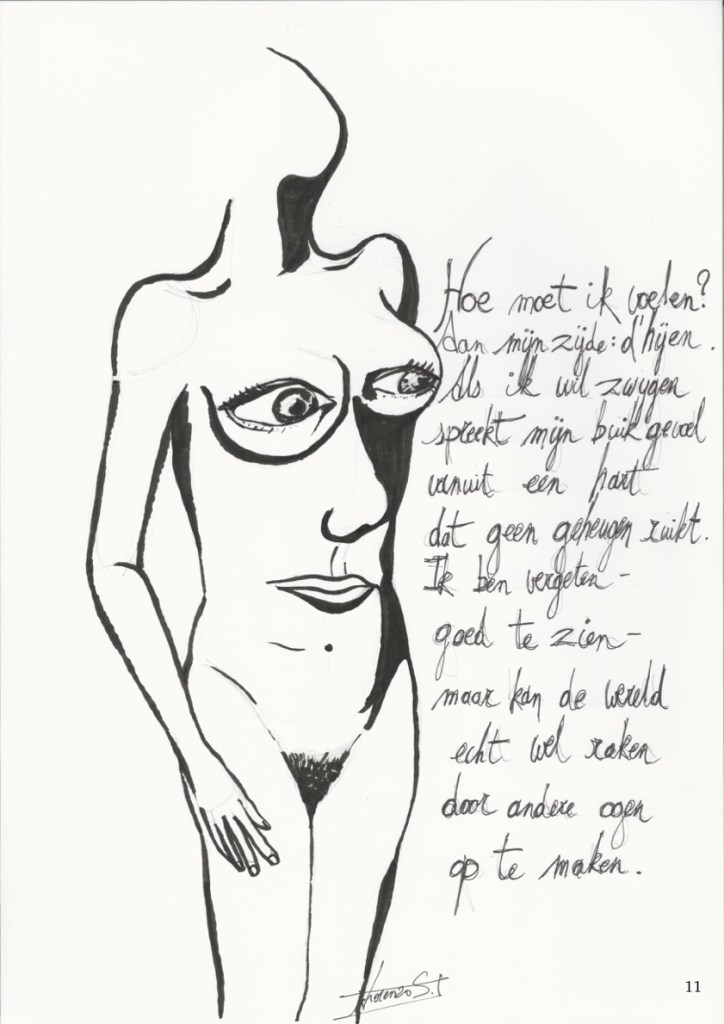 Hoe moet ik voelen?
Aan mijn zijde: d'hijen.
Als ik wil zwijgen
spreekt mijn buikgevoel
vanuit een hart
dat geen geheugen ruikt.
Ik ben vergeten -
goed te zien -
maar kan de wereld
echt wel raken
door andere ogen
op te maken.
Lorenzo S.
11